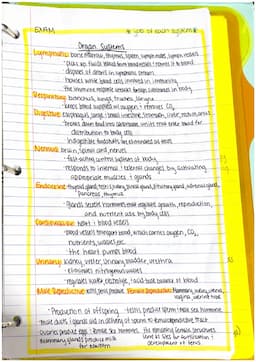 EXAM
* job of each system *
Organ Systems
Lymphatic: bone marrow, thymus, spleen, lymph nodes, lymph vessels
· picks up fluid leaked from blood vessels & returns it to blood
· disposes of debris in lymphatic stream
· houses white blood cells involved in immunity
· the immune response against foreign substances in body
Respiratory: bronchus, lungs, trachea, larynx
· keeps blood supplied w/ oxygen & removes CO₂
Digestive:
· breaks down food into absorbable units that enter blood for
distribution to body cells
· indigestible foodstuffs are eliminated as feces
Nervous: brain, spinal cord, nerves
· fast-acting control system of body
· responds to internal & external changes by activating
appropriate muscles & glands
Endocrine:
pancreas, thymus
· glands secrete hormones that regulate growth, reproduction,
and nutrient use by body cells
Cardiovascular: heart & blood vessels
· blood vessels transport blood, which carries oxygen, CO₂,
nutrients, wastes, etc.
· the heart pumps blood
Urinary: kidney, ureter, urinary bladder, urethra
· eliminates nitrogenous wastes
· regulates water, electrolyte, & acid-base balance of blood
Male Reproductive: Female Reproductive: Mammary, ovary, uterus,
vagina, uterine tube
· Production of offspring · testes produce sperm & male sex hormone
· male ducts & glands aid in delivery of sperm to female reproductive tract
· Ovaries produce eggs & female sex hormones · the remaining female structures
· mammary glands produce milk
for newborn
development of fetus